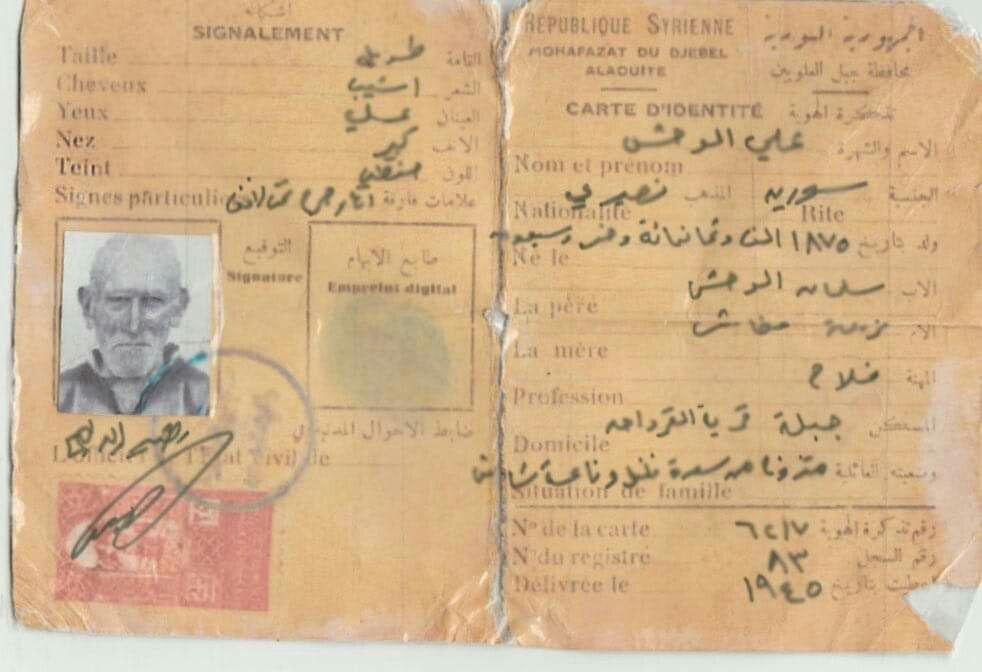 اشكاله
SIGNALEMENT
Taille طويل القامة
Cheveux اشيب الشعر
Yeux عسلي العينان
Nez كبير الانف
Teint حنطي اللون
Signes particuli علامات فارقة
التوقيع
Signature
طابع الابهام
Empreint digital
ضابط الاحوال المدنية
L'officier l'Etat civil de
RÉPUBLIQUE SYRIENNE الجمهورية السورية
MOHAFAZAT DU DJEBEL ALAOUITE محافظة جبل العلويين
CARTE D'IDENTITÉ تذكرة الهوية
علي الوحش الاسم والشهرة
Nom et prénom
سورية الجنسية نصيري المذهب
Nationalité Rite
ولد بتاريخ ١٨٧٥ الف وثمانمائة وخمس وسبعون
Né le
سلمان الوحش الاب
La père
الام
La mère
فلاح المهنة
Profession
جبلة القرداحه المسكن
Domicile
وضعيته العائلية
Situation de famille
Nº de la carte ٦٢١٧ رقم تذكرة الهوية
Nº du registre ٨٣ رقم السجل
Délivrée le ١٩٤٥ اعطيت بتاريخ